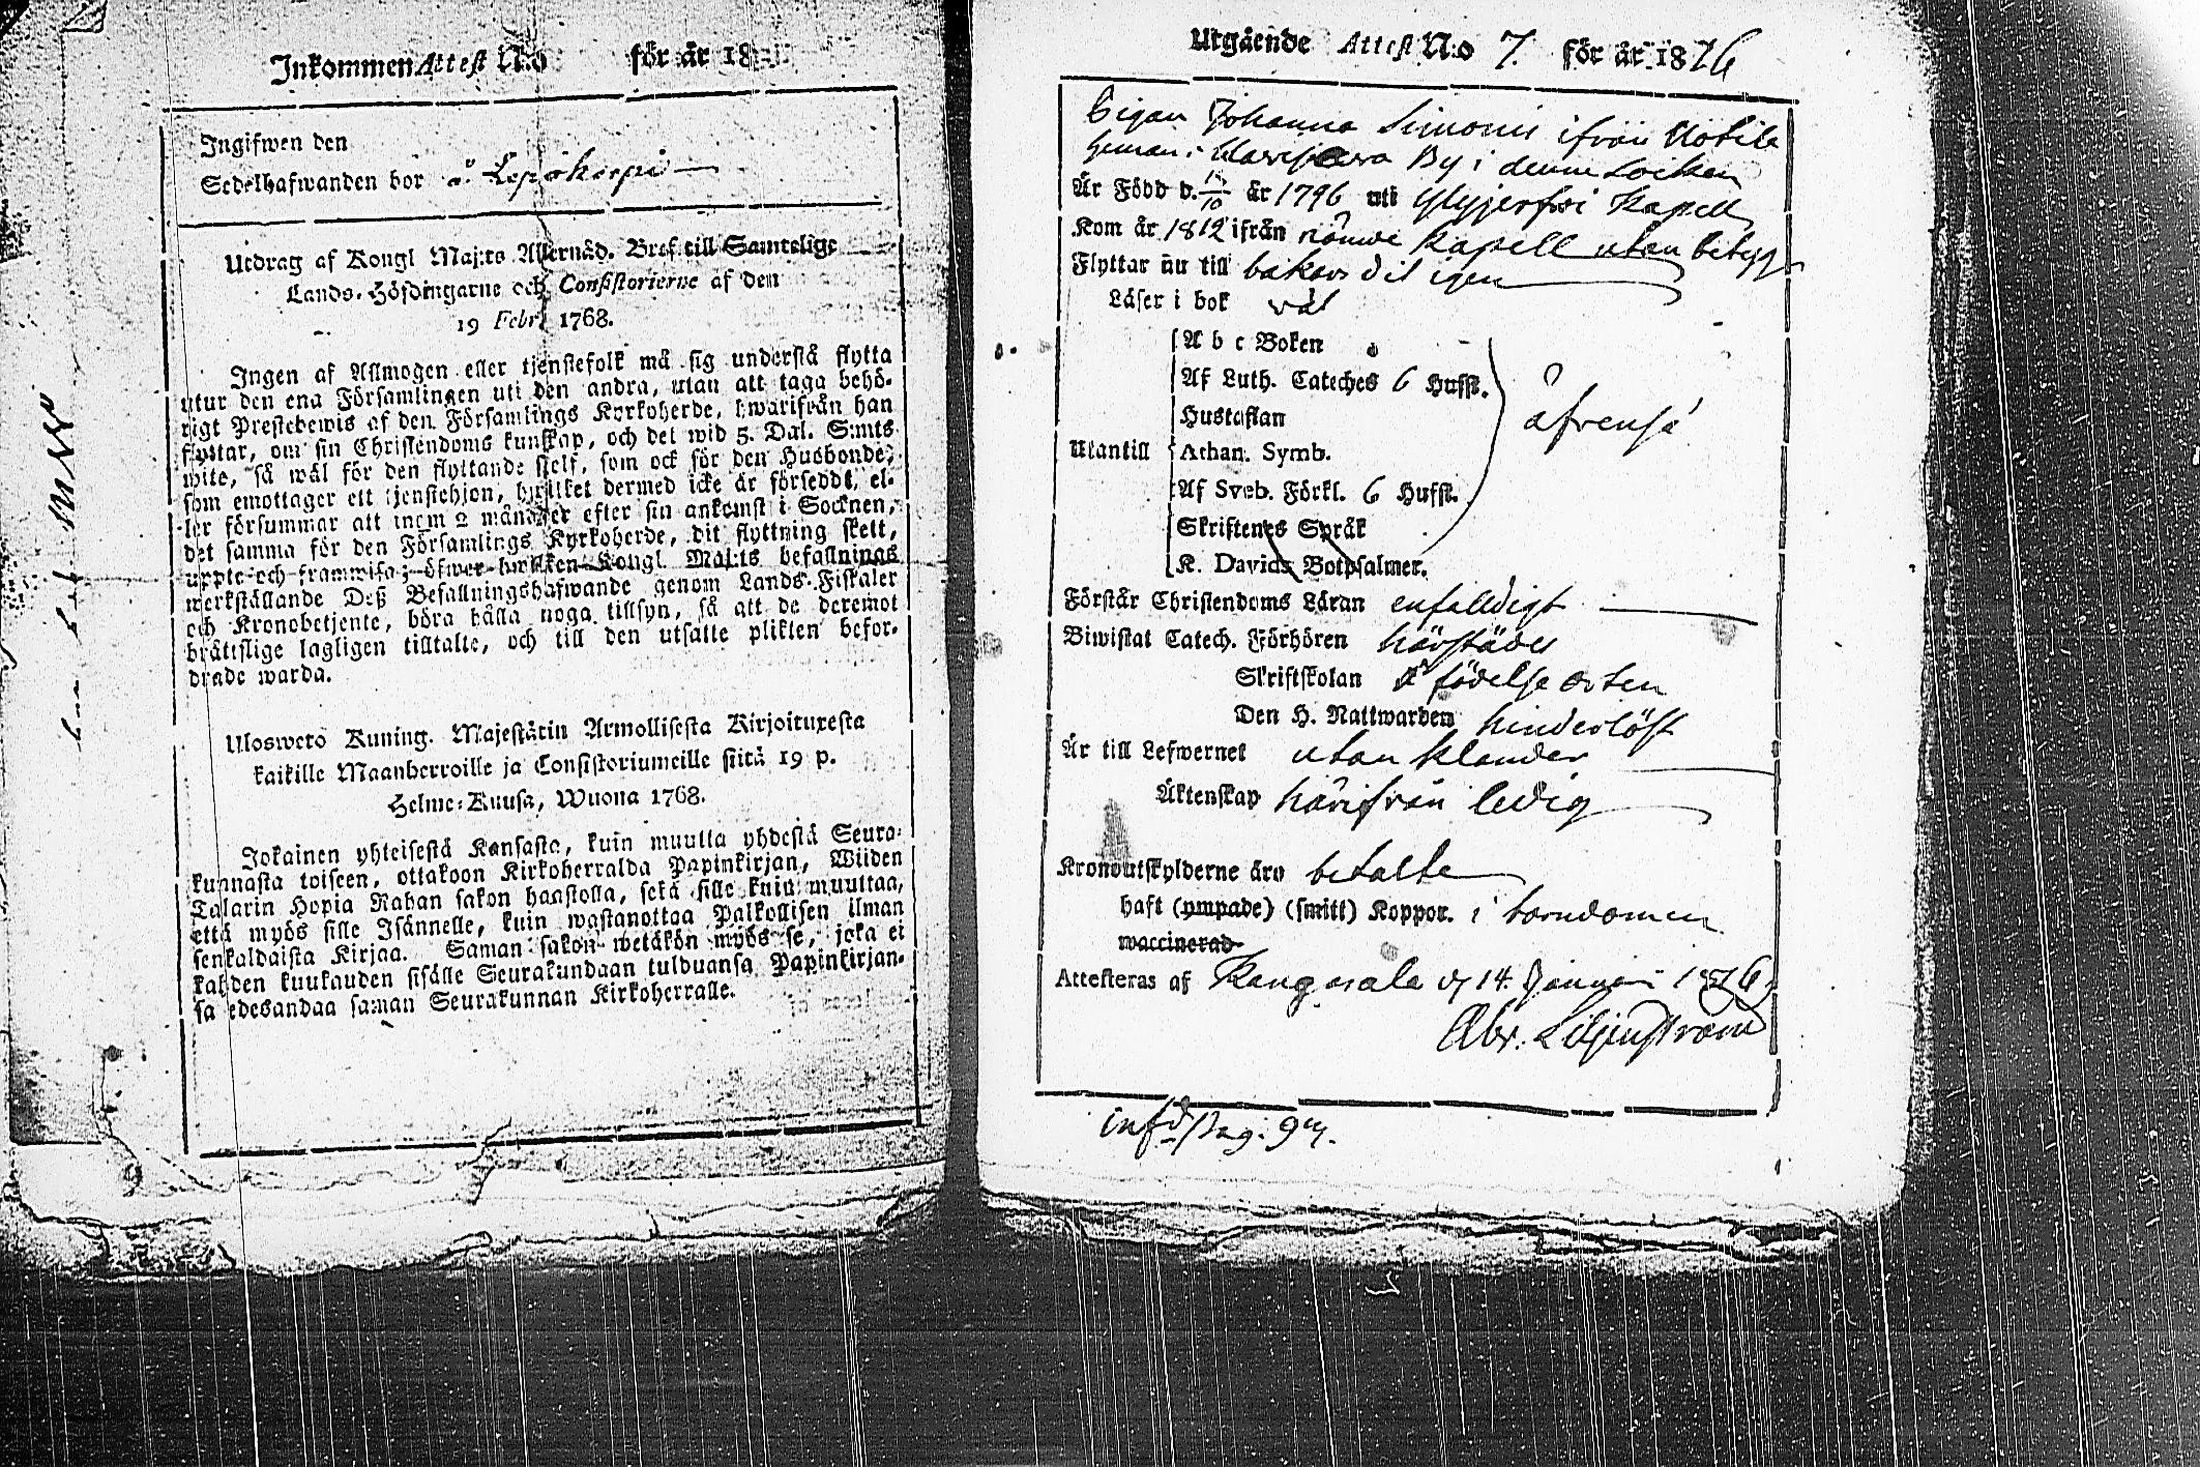 Inkommen Attest N:o för år 18
Ingifwen den
Sedelhafwanden bor å Lepokorpi
Utdrag af Kongl Maj:ts Allernåd. Bref till Samtelige
Lands-Höfdingarne och Consistorierne af den
19 Febr. 1768.
Ingen af Allmogen eller tjenstefolk må sig understå flytta
utur den ena Församlingen uti den andra, utan att taga behö-
rigt Prestebewis af den Församlings Kyrkoherde, hwarifrån han
flyttar, om sin Christendoms kunskap, och det wid 5. Dal. S:mts
wite, så wäl för den flyttande sjelf, som ock för den Husbonde,
som emottager ett tjenstehjon, hwilket dermed icke är försedt, el-
ler försummar att inom 2 månader efter sin ankomst i Socknen,
det samma för den Församlings Kyrkoherde, dit flyttning skett,
uppte och framwisa; öfwer hwilken Kongl Maj:ts befallnings
werkställande Deß Befallningshafwande genom Lands-Fiskaler
och Kronobetjente, böra hålla noga tillsyn, så att de deremot
bråttslige lagligen tilltalte, och till den utsatte plikten befor-
drade warda.
Ulosweto Kuning. Majestätin Armollisesta Kirjoituxesta
kaikille Maanherroille ja Consistoriumeille siitä 19 p.
Helme-Kuusa, Wuona 1768.
Jokainen yhteisestä Kansasta, kuin muutta yhdestä Seura-
kunnasta toiseen, ottakoon Kirkoherralda Papinkirjan, Wiiden
Talarin Hopia Rahan sakon haastolla, sekä sille kuin muuttaa,
että myös sille Isännelle, kuin wastanottaa Palkollisen ilman
senkaldaista Kirjaa. Saman sakon wetäkön myös se, joka ei
kahden kuukauden sisälle Seurakundaan tulduansa Papinkirjan-
sa edesandaa saman Seurakunnan Kirkoherralle.
Utgående Attest N:o 7. för år 1826
Pigan Johanna Simonis ifrån
i By i denna Socken
Är Född d. år 1796 uti Kapell
Kom år 1812 ifrån nämde Kapell utan betyg
Flyttar nu till bakars dit igen
Läser i bok wäl
A b c Boken
Af Luth. Cateches 6 Hufst.
Hustaflan
Utantill Athan. Symb.
Af Sveb. Förkl. 6 Hufst.
Skriftenes Språk
K. Davids Botpsalmer.
Förstår Christendoms Läran enfaldigt
Biwistat Catech. Förhören härstädes
Skriftskolan å födelse orten
Den H. Nattwarden hinderlöst
Är till Lefwernet utan klander
Äktenskap härifrån ledig
Kronoutskylderne äro betalte
haft (ympade) (smitt) Koppor. i barndomen
waccinerad
Attesteras af Kangasala d 14. Januari 1826.
Abr. Liljenström